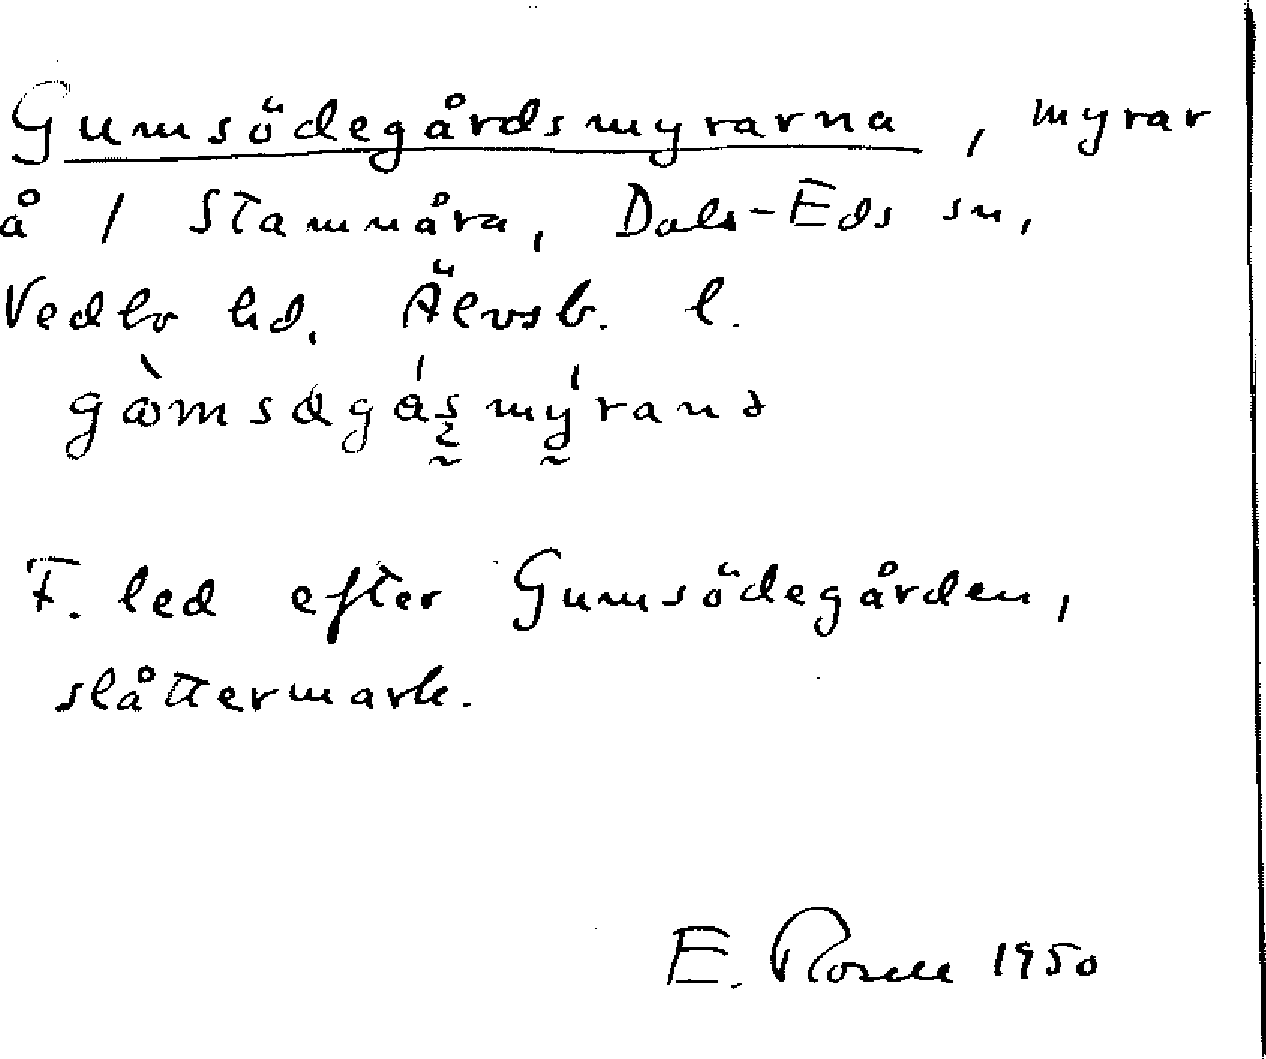 Gumsödegårdsmyrarna, myrar
å 1 Stamnåra, Dals-Eds sn,
Vedbo hd. Älvsb. l.
F. led efter Gumsödegården,
slåttermark.
E. Rosell 1950